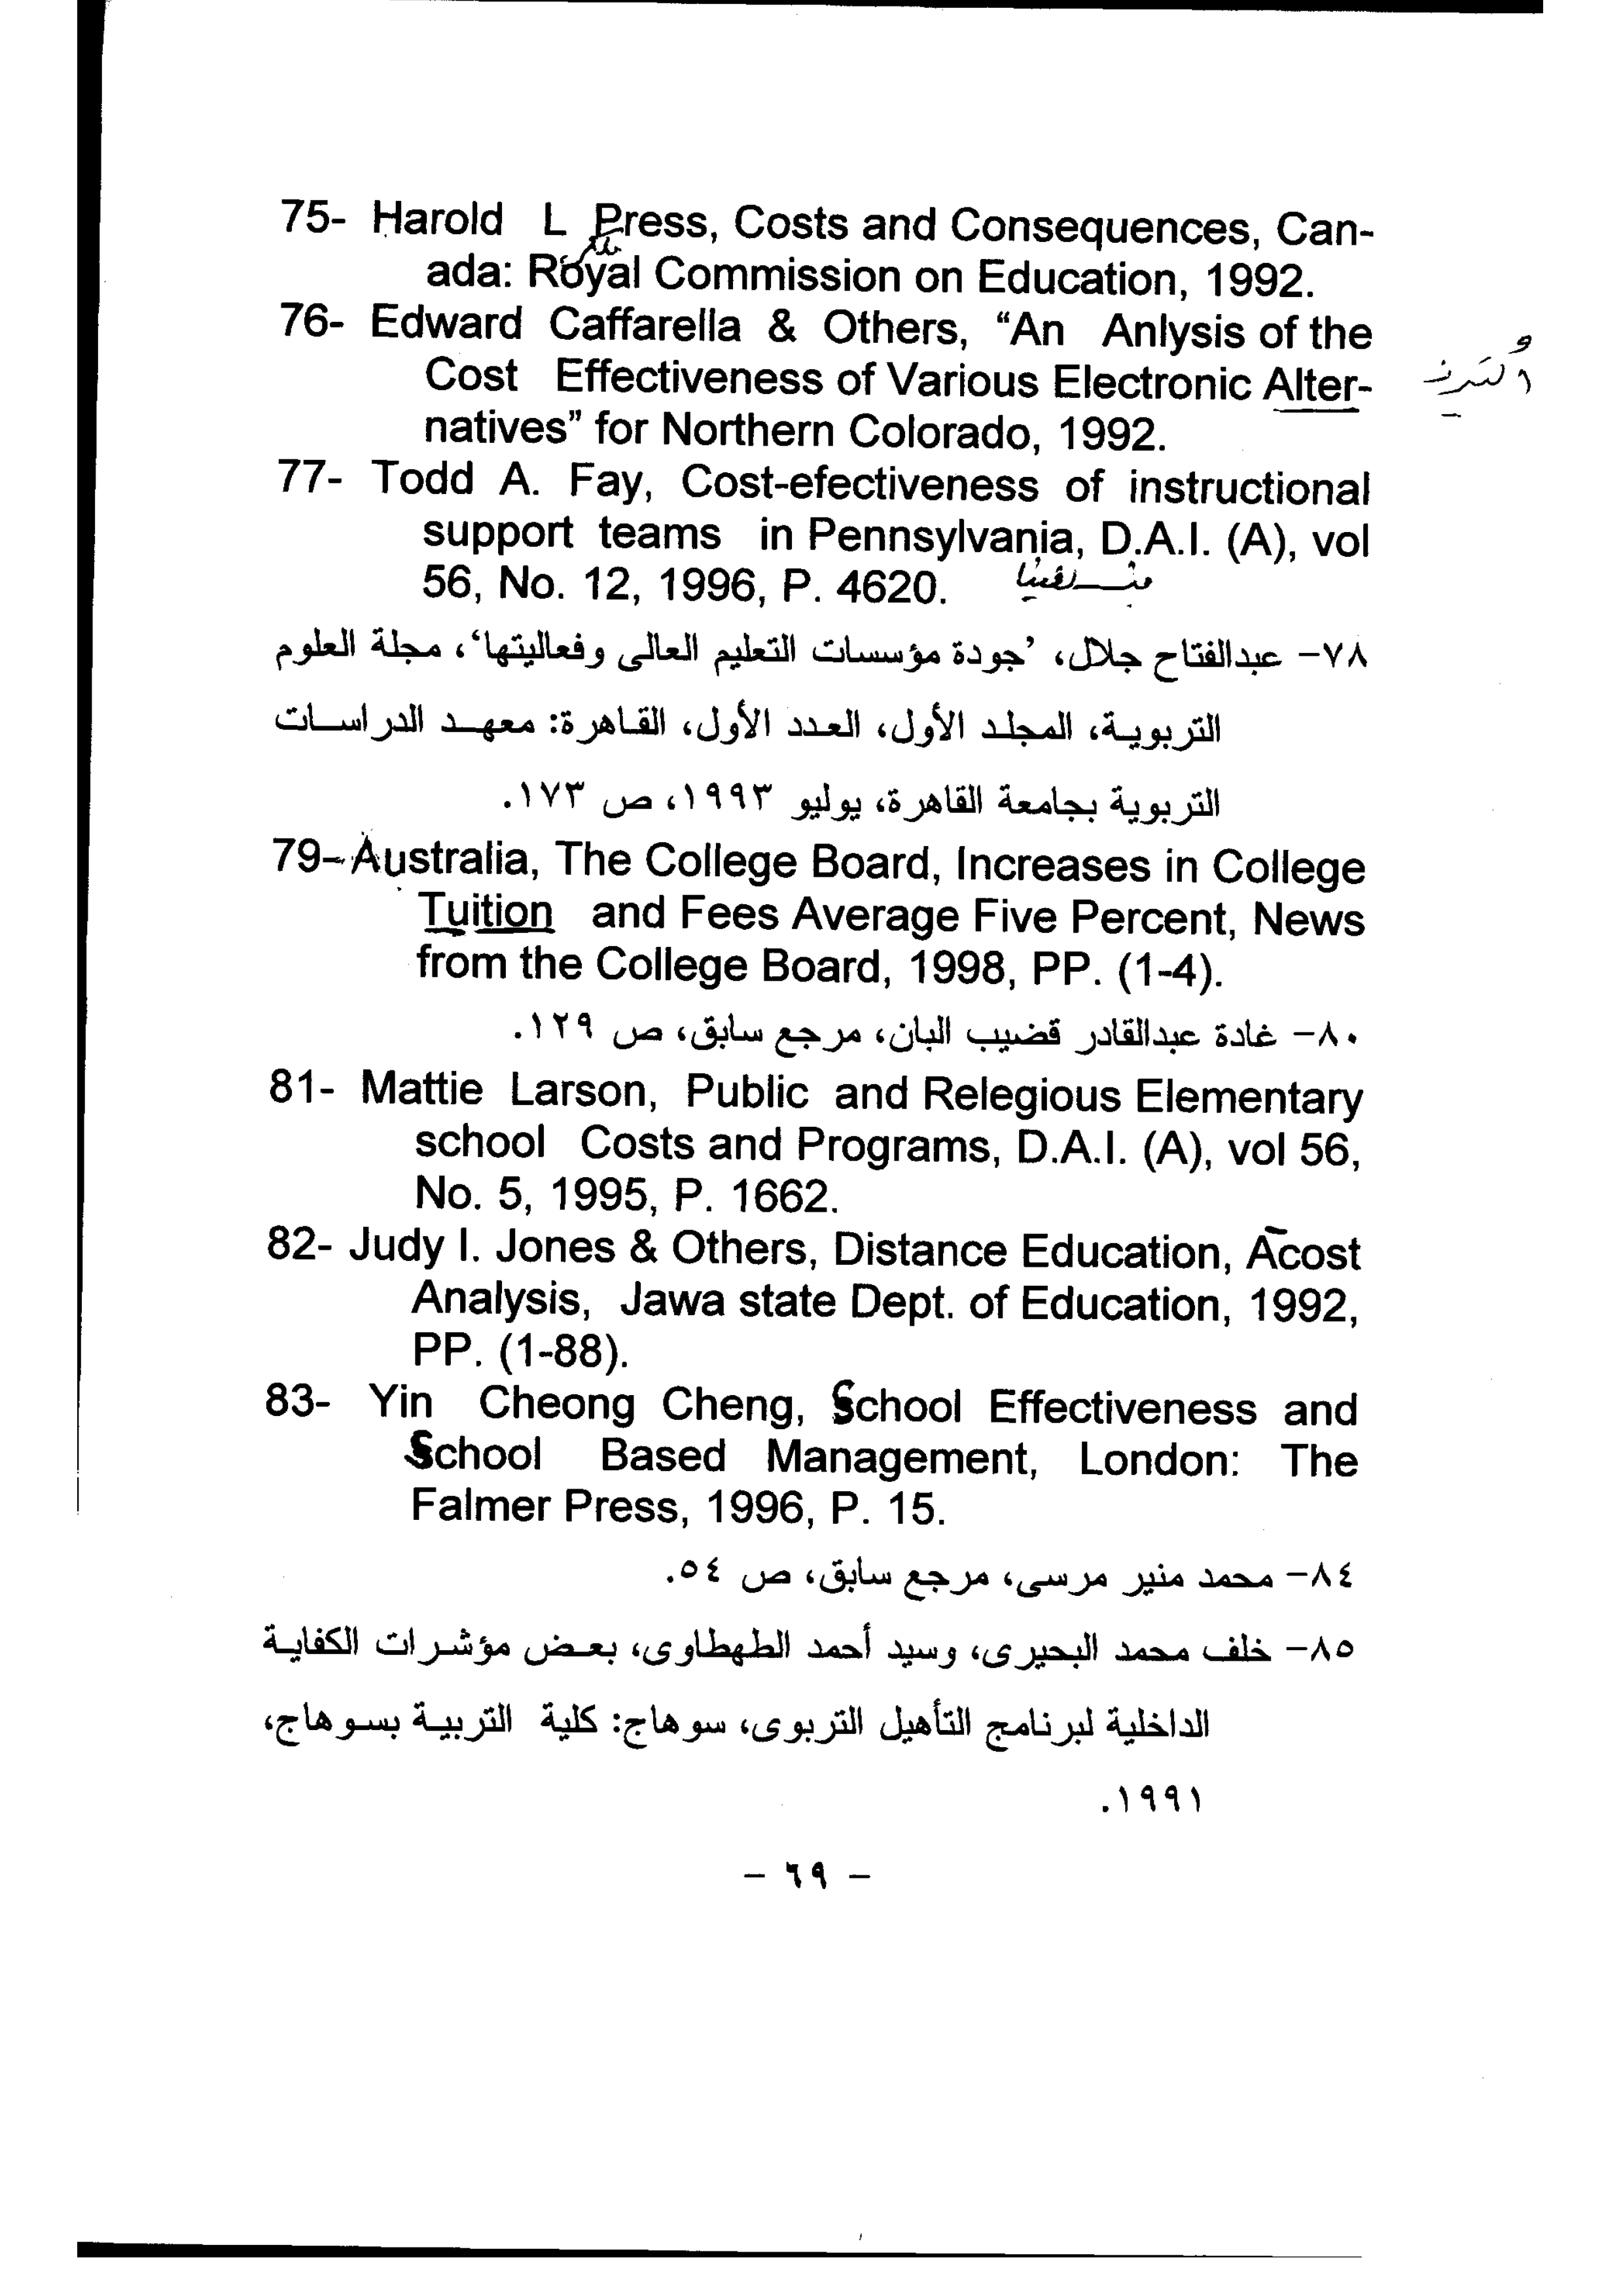 75- Harold L Press, Costs and Consequences, Can-
ada: Royal Commission on Education, 1992.
76- Edward Caffarella & Others, “An Anlysis of the
Cost Effectiveness of Various Electronic Alter-
natives” for Northern Colorado, 1992.
77- Todd A. Fay, Cost-efectiveness of instructional
support teams in Pennsylvania, D.A.I. (A), vol
56, No. 12, 1996, P. 4620.
٧٨- عبدالفتاح جلال، ’جودة مؤسسات التعليم العالى وفعاليتها‘، مجلة العلوم
التربوية، المجلد الأول، العدد الأول، القاهرة: معهد الدراسات
التربوية بجامعة القاهرة، يوليو ١٩٩٣، ص ١٧٣.
79- Australia, The College Board, Increases in College
Tuition and Fees Average Five Percent, News
from the College Board, 1998, PP. (1-4).
٨٠- غادة عبدالقادر قضيب البان، مرجع سابق، ص ١٢٩.
81- Mattie Larson, Public and Relegious Elementary
school Costs and Programs, D.A.I. (A), vol 56,
No. 5, 1995, P. 1662.
82- Judy I. Jones & Others, Distance Education, Acost
Analysis, Jawa state Dept. of Education, 1992,
PP. (1-88).
83- Yin Cheong Cheng, School Effectiveness and
School Based Management, London: The
Falmer Press, 1996, P. 15.
٨٤- محمد منير مرسى، مرجع سابق، ص ٥٤.
٨٥- خلف محمد البحيرى، وسيد أحمد الطهطاوى، بعض مؤشرات الكفاية
الداخلية لبرنامج التأهيل التربوى، سوهاج: كلية التربية بسوهاج،
١٩٩١.
- ٦٩ -